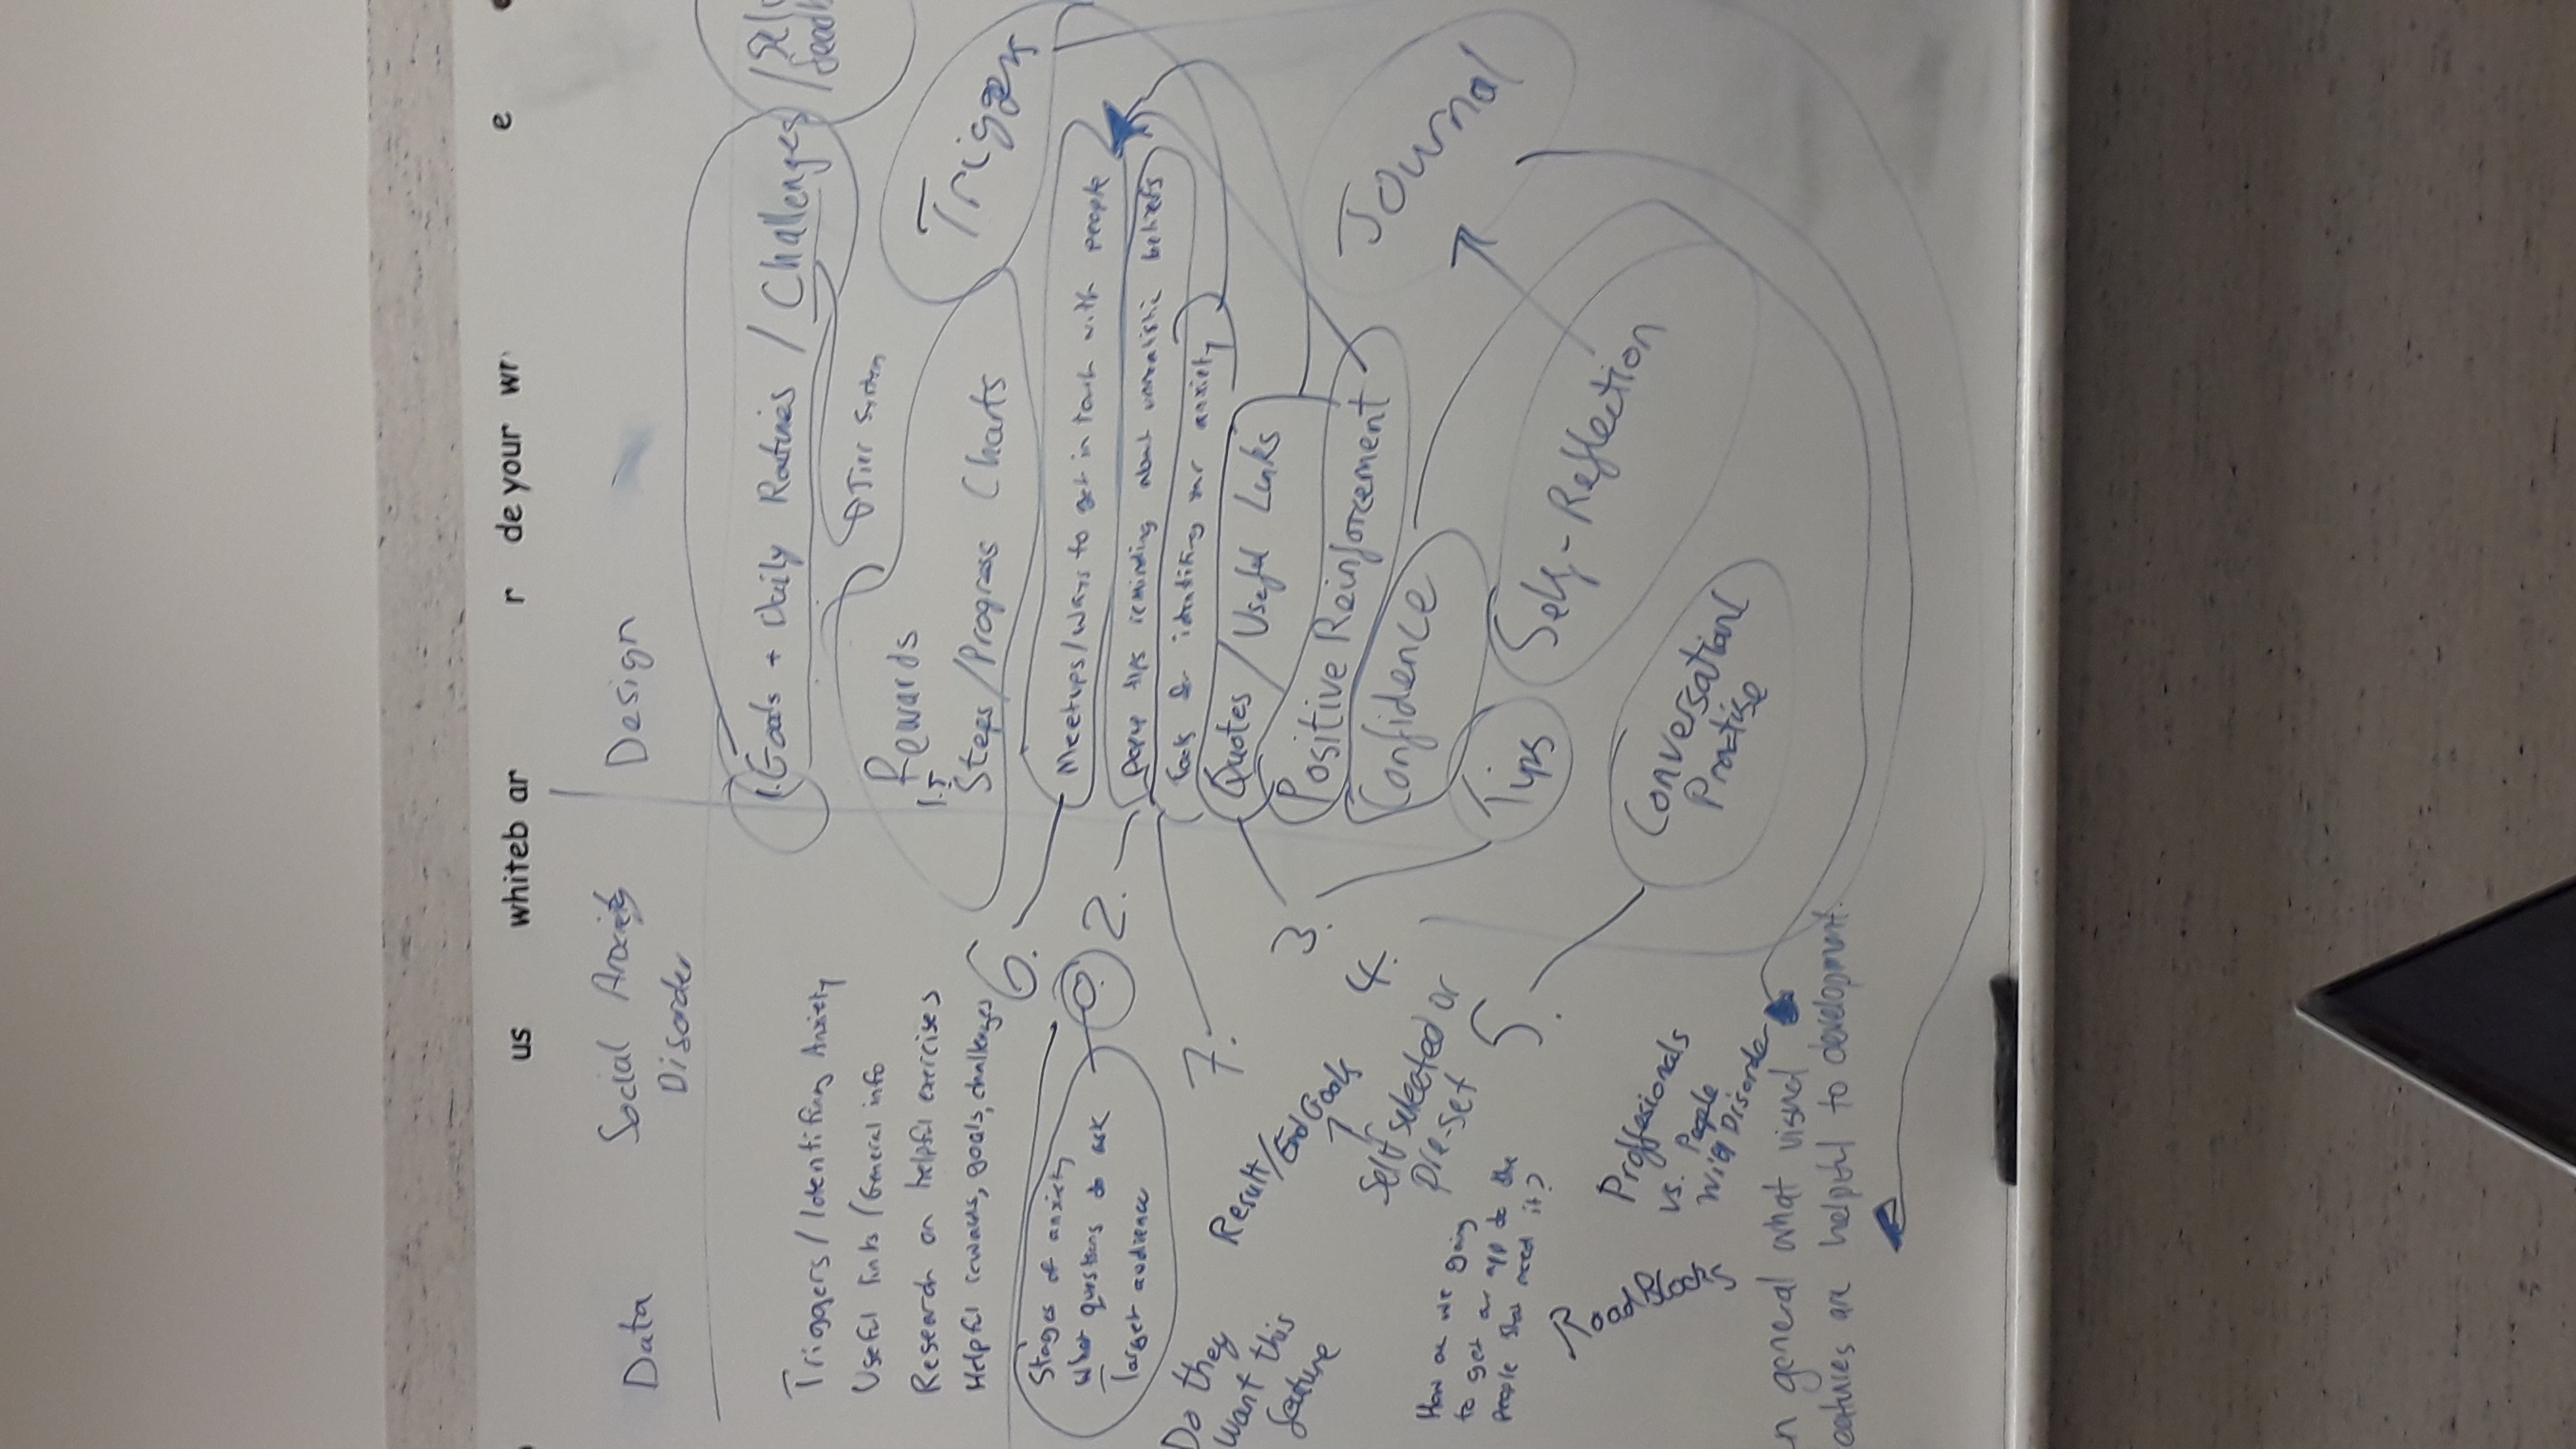 us whiteb ar r de your wr e
Data
Social Anxiety
Disorder
Triggers / Identifing Anxiety
Useful links / General info
Research on helpful exercises
Helpful rewards, goals, challenges
Stages of anxiety
What questions to ask
Target audience
0.
Do they
want this
feature
Result/End Goals
Self selected or
Pre-set
How are we going
to get our app to the
people that need it?
RoadBlocks
Proffesionals
vs. People
With Disorder
n general what visual
eatures are helpful to development.
Design
1. Goals + Daily Routines / Challenges
/Sel
feed
Tier System
Rewards
1.5
Steps/Progress Charts
Triggers
6.
Meetups/Ways to get in touch with people
2.
popup tips reminding about unrealistic beliefs
7.
tools for identifing your anxiety
3.
Quotes / Useful Links
Positive Reinforcement
4.
Confidence
Journal
Tips
Self-Reflection
5.
Conversational
Practise